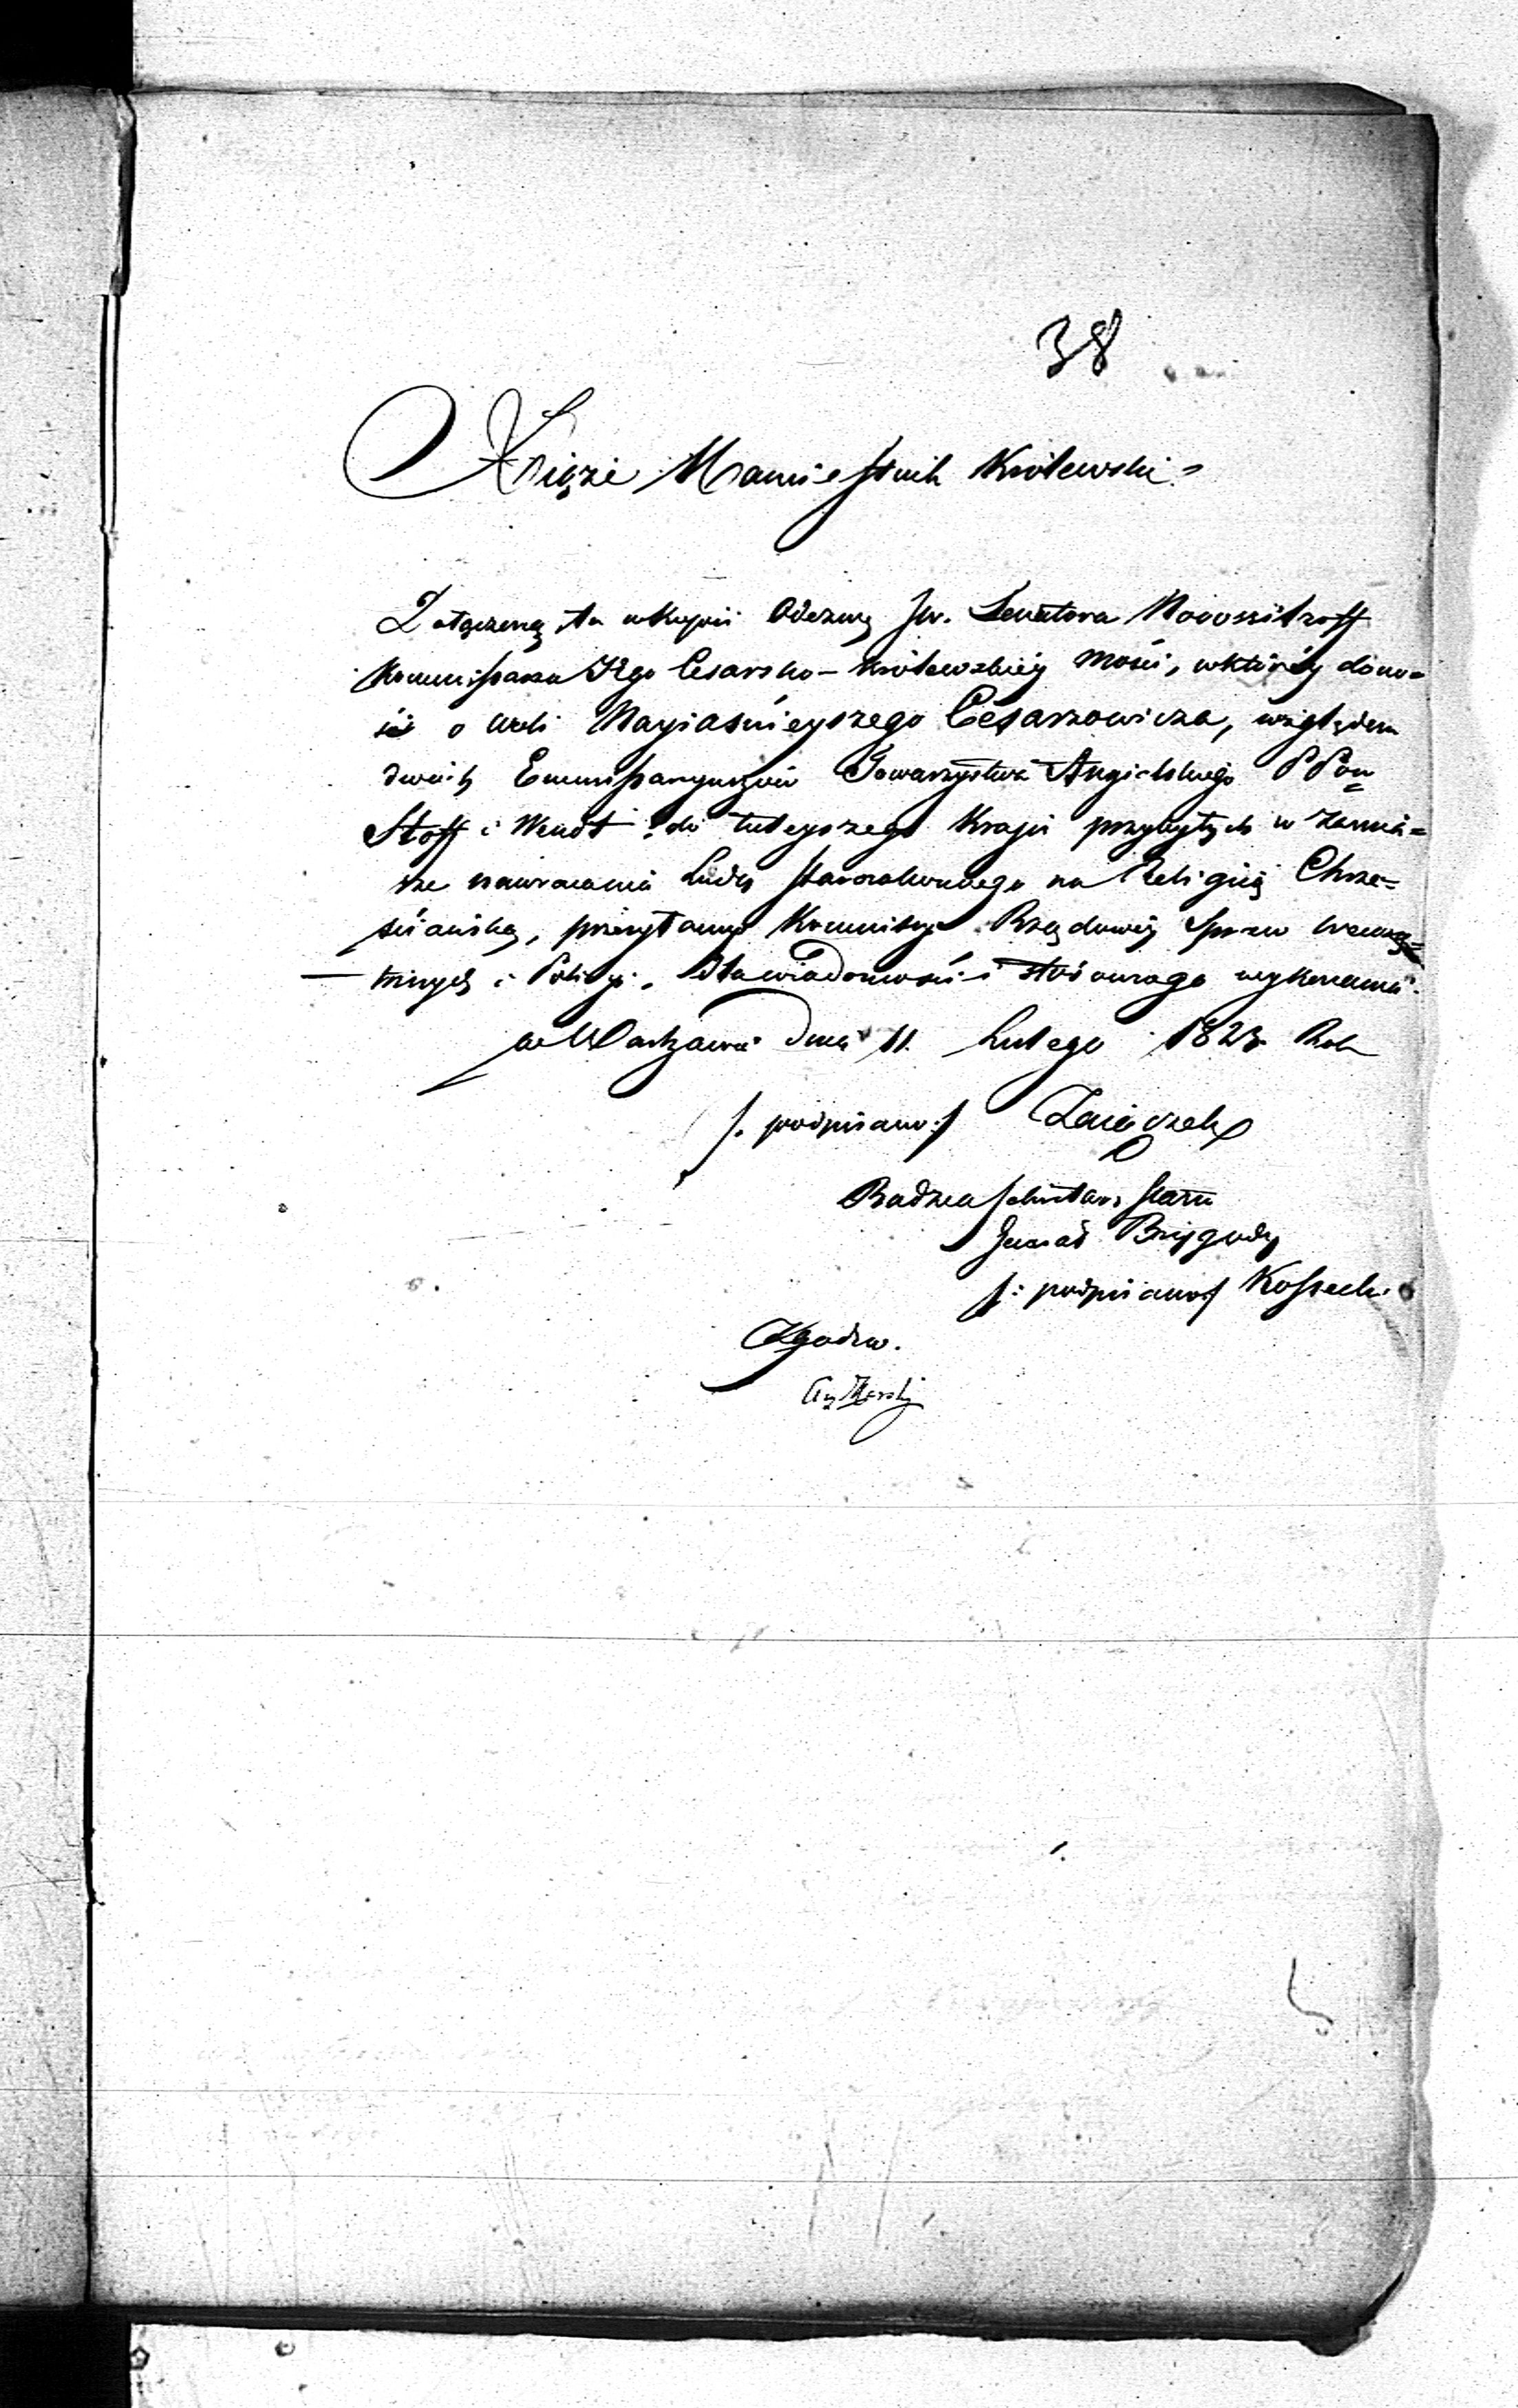 38
Xiąże Namiestnik Królewski
Załączoną tu w kopii Odezwę JW. Senatora Nowosiltzoff
Kommissarza JEgo Cesarsko-Królewskiéy Mości, w któréy dono=
si o Woli Nayiaśnieyszego Cesarzowicza, względem
dwóch Emmissaryuszów Towarzystwa Angielskiego PP
Hoff i Wendt do tuteyszego Kraju przybyłych w zamia=
rze nawracania Ludu Starozakonnego na Religią Chrze=
ściańską, przesyłamy Kommissyi Rządowéy Spraw Wewnę=
trznych i Policyi, dla wiadomości i stosownego wykonania.
w Warszawie dnia 11. Lutego 1823 Roku
/: podpisano :/ Zaiączek
Radzca Sekretarz Stanu
Generał Brygady
/: podpisano :/ Kossecki
Zgodno.